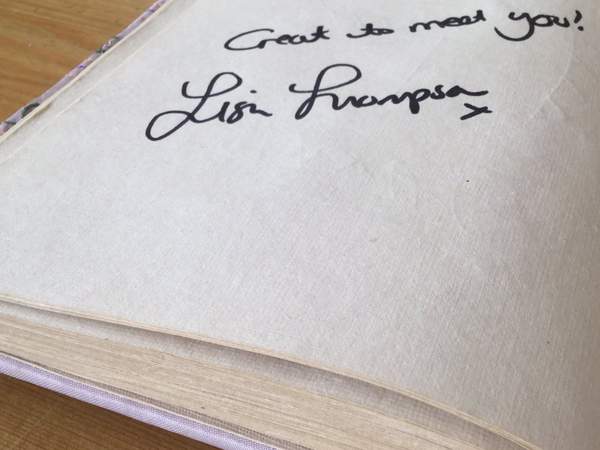 Great to meet you!
Lisa Thompson
x